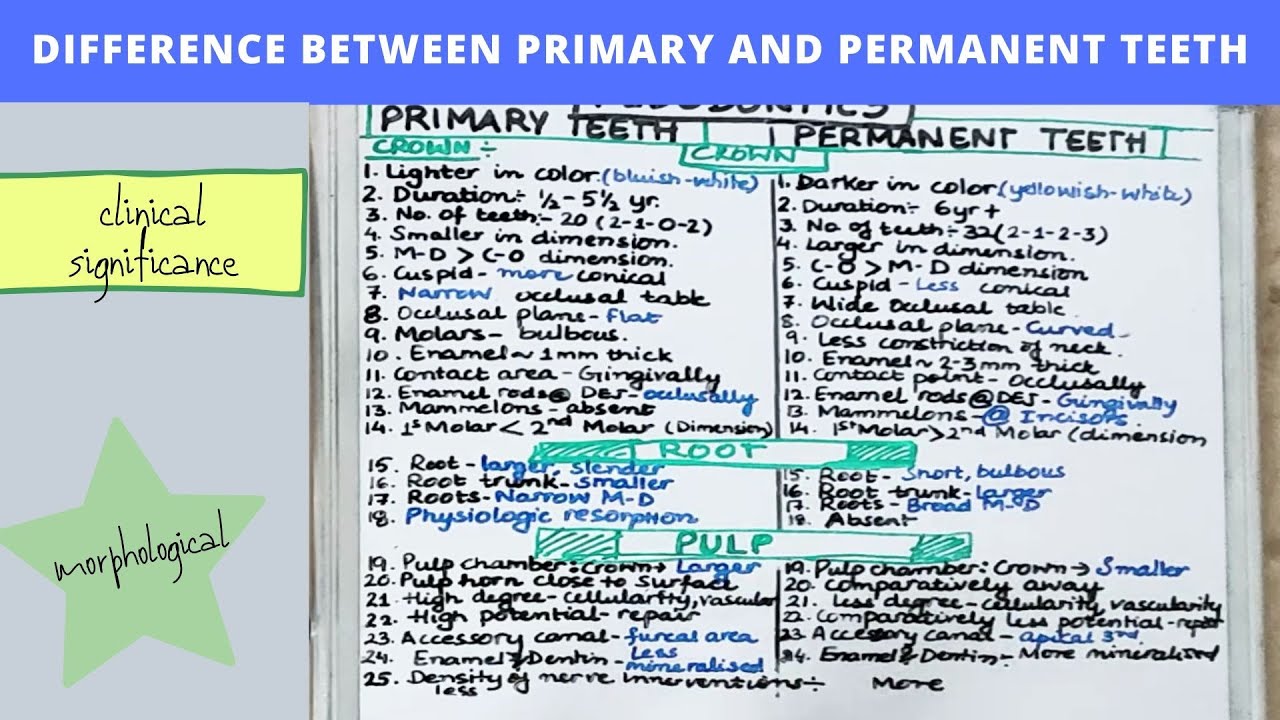 DIFFERENCE BETWEEN PRIMARY AND PERMANENT TEETH
clinical
significance
morphological
PRIMARY TEETH
CROWN :-
1. Lighter in color (bluish-white)
2. Duration:- ½ - 5½ yr.
3. No. of teeth:- 20 (2-1-0-2)
4. Smaller in dimension.
5. M-D > C-O dimension.
6. Cuspid - more conical
7. Narrow occlusal table
8. Occlusal plane - flat
9. Molars - bulbous.
10. Enamel ~ 1mm thick
11. Contact area - Gingivally
12. Enamel rods @ DEJ - occlusally
13. Mammelons - absent
14. 1st Molar < 2nd Molar (Dimension)
PERMANENT TEETH
CROWN
1. Darker in color (yellowish-white)
2. Duration:- 6yr +
3. No of teeth:- 32 (2-1-2-3)
4. Larger in dimension.
5. C-O > M-D dimension
6. Cuspid - Less conical
7. Wide Occlusal table.
8. Occlusal plane - Curved
9. Less constriction of neck.
10. Enamel ~ 2-3mm thick
11. Contact point - Occlusally
12. Enamel rods @ DEJ - Gingivally
13. Mammelons - @ Incisors.
14. 1st Molar > 2nd Molar (dimension
ROOT
15. Root - larger, slender
16. Root trunk - smaller
17. Roots - Narrow M-D
18. Physiologic resorption
15. Root - Short, bulbous
16. Root trunk - larger
17. Roots - Broad M-D
18. Absent
PULP
19. Pulp chamber : Crown → Larger
20. Pulp horn close to surface
21. High degree - cellularity, vascular
22. High potential - repair
23. Accessory canal - furcal area
24. Enamel & Dentin - less mineralised
25. Density of nerve innerventions :- less
19. Pulp chamber : Crown → Smaller
20. Comparatively away
21. less degree - cellularity, vascularity
22. Comparatively less potential - repair
23 Accessory canal - apical 3rd.
24. Enamel & Dentin :- More mineralised
More